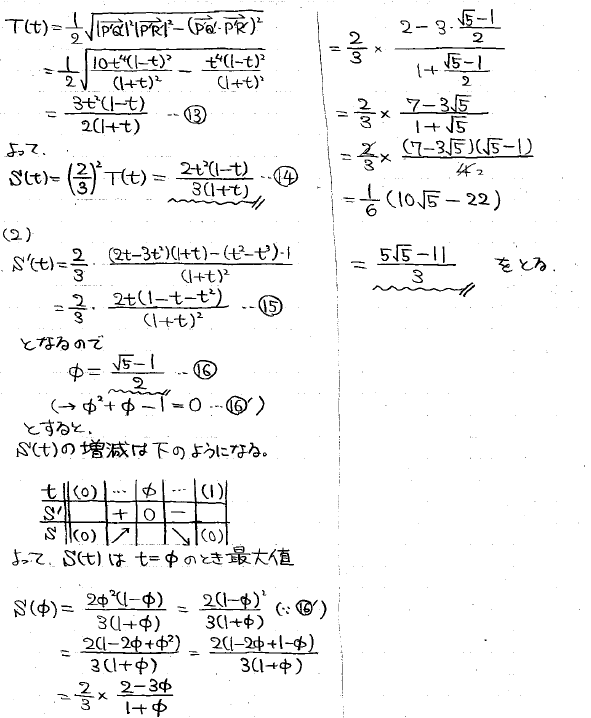 T(t) = 1/2 √(|P'Q'|²|P'R'|² − (P'Q'·P'R')²)
= 1/2 √(10t⁴(1−t)²/(1+t)² − t⁴(1−t)²/(1+t)²)
= 3t²(1−t)/2(1+t) …⑬
よって、
S(t) = (2/3)² T(t) = 2t²(1−t)/3(1+t) …⑭
(2)
S'(t) = 2/3 · ((2t−3t²)(1+t) − (t²−t³)·1)/(1+t)²
= 2/3 · 2t(1−t−t²)/(1+t)² …⑮
となるので
φ = (√5−1)/2 …⑯
(→ φ²+φ−1=0 …⑯')
とすると、
S(t)の増減は下のようになる。
t (0) … φ … (1)
S' + 0 −
S (0) ↗ ↘ (0)
よって、S(t)は t=φ のとき最大値
S(φ) = 2φ²(1−φ)/3(1+φ) = 2(1−φ)²/3(1+φ) (∵⑯')
= 2(1−2φ+φ²)/3(1+φ) = 2(1−2φ+1−φ)/3(1+φ)
= 2/3 × (2−3φ)/(1+φ)
= 2/3 × (2−3·(√5−1)/2)/(1+(√5−1)/2)
= 2/3 × (7−3√5)/(1+√5)
= 2/3 × (7−3√5)(√5−1)/4 2
= 1/6 (10√5−22)
= (5√5−11)/3 をとる.